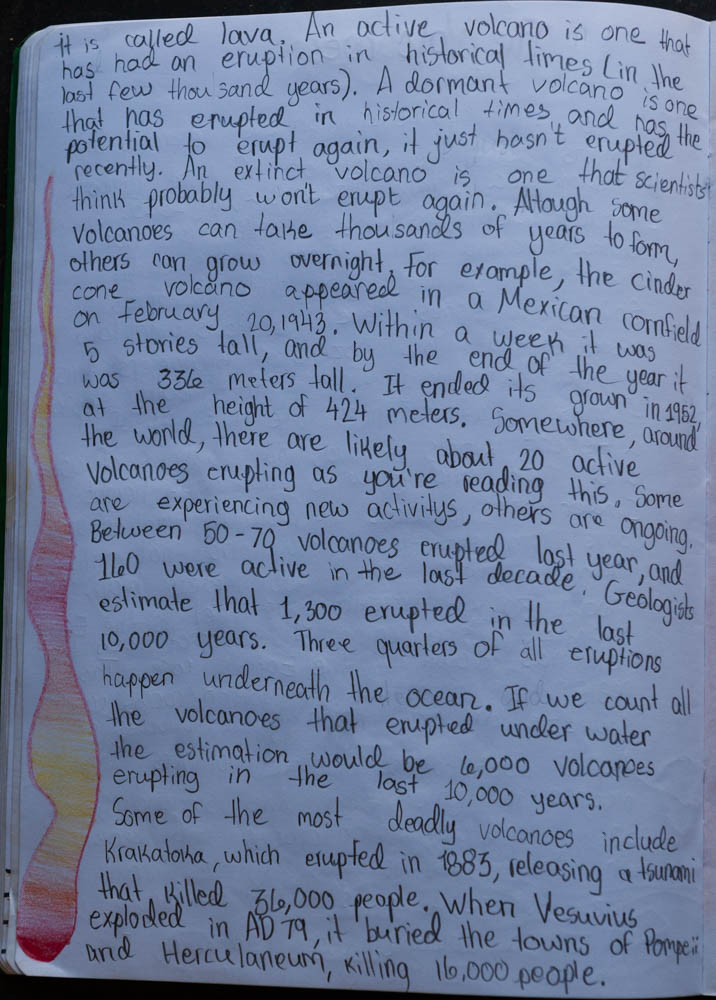 it is called lava. An active volcano is one that
has had an eruption in historical times (in the
last few thousand years). A dormant volcano is one
that has erupted in historical times and has the
potential to erupt again, it just hasn't erupted
recently. An extinct volcano is one that scientists
think probably won't erupt again. Altough some
volcanoes can take thousands of years to form,
others can grow overnight. For example, the cinder
cone volcano appeared in a Mexican cornfield
on February 20,1943. Within a week it was
5 stories tall, and by the end of the year it
was 336 meters tall. It ended its grown in 1952,
at the height of 424 meters. Somewhere, around
the world, there are likely about 20 active
volcanoes erupting as you're reading this. Some
are experiencing new activitys, others are ongoing.
Between 50-70 volcanoes erupted last year, and
160 were active in the last decade. Geologists
estimate that 1,300 erupted in the last
10,000 years. Three quarters of all eruptions
happen underneath the ocean. If we count all
the volcanoes that erupted under water
the estimation would be 6,000 volcanoes
erupting in the last 10,000 years.
Some of the most deadly volcanoes include
Krakatoka, which erupted in 1883, releasing a tsunami
that killed 36,000 people. When Vesuvius
exploded in AD 79, it buried the towns of Pompeii
and Herculaneum, killing 16,000 people.